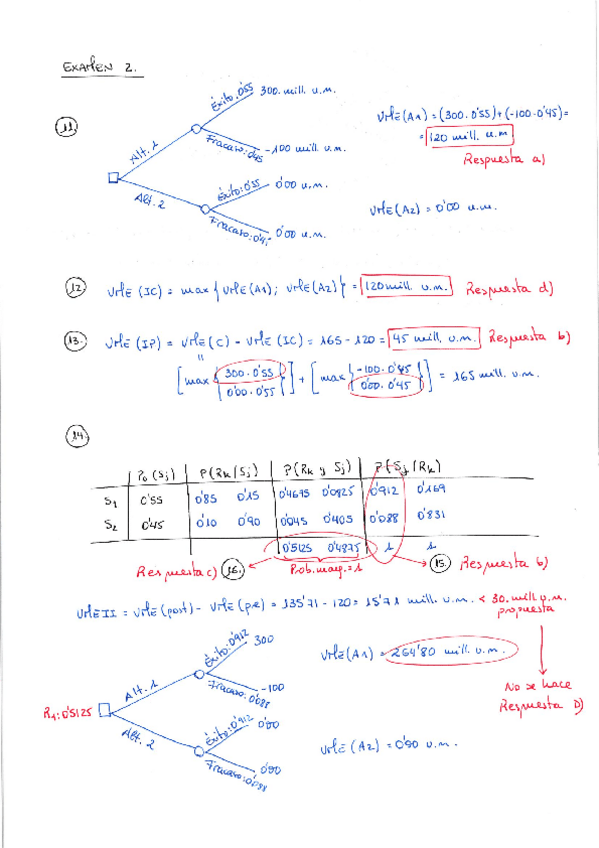 EXAMEN 2.
11.
Alt. 1
Éxito: 0'55
300. mill. u.m.
Fracaso: 0'45
-100 mill. u.m.
Alt. 2
Éxito: 0'55
0'00 u.m.
Fracaso: 0'45
0'00 u.m.
VME(A1) = (300. 0'55) + (-100. 0'45) =
= 120 mill. u.m
Respuesta a)
VME(A2) = 0'00 u.m.
12. VME (IC) = max { VME(A1); VME(A2) } = 120 mill. u.m. Respuesta d)
13. VME (IP) = VME(C) - VME (IC) = 165 - 120 = 45 mill. u.m. Respuesta b)
"
[max { 300. 0'55 0'00. 0'55 }] + [max { -100. 0'45 0'00. 0'45 }] = 165 mill. u.m.
14.
Po (Sj) P(Rk/Sj) P(Rk y Sj) P(Sj/Rk)
S1 0'55 0'85 0'15 0'4675 0'0825 0'912 0'169
S2 0'45 0'10 0'90 0'045 0'405 0'088 0'831
0'5125 0'4875 1 1
Respuesta c) 16. Prob. marg. = 1 15. Respuesta b)
VME II = VME (post) - VME (pre) = 135'71 - 120 = 15'71 mill. u.m. < 30. mill. u.m.
propuesta
No se hace
Respuesta D)
R1: 0'5125
Alt. 1
Éxito: 0'912
300
Fracaso: 0'088
-100
Alt. 2
Éxito: 0'912
0'00
Fracaso: 0'088
0'00
VME(A1) = 264'80 mill. u.m.
VME (A2) = 0'00 u.m.